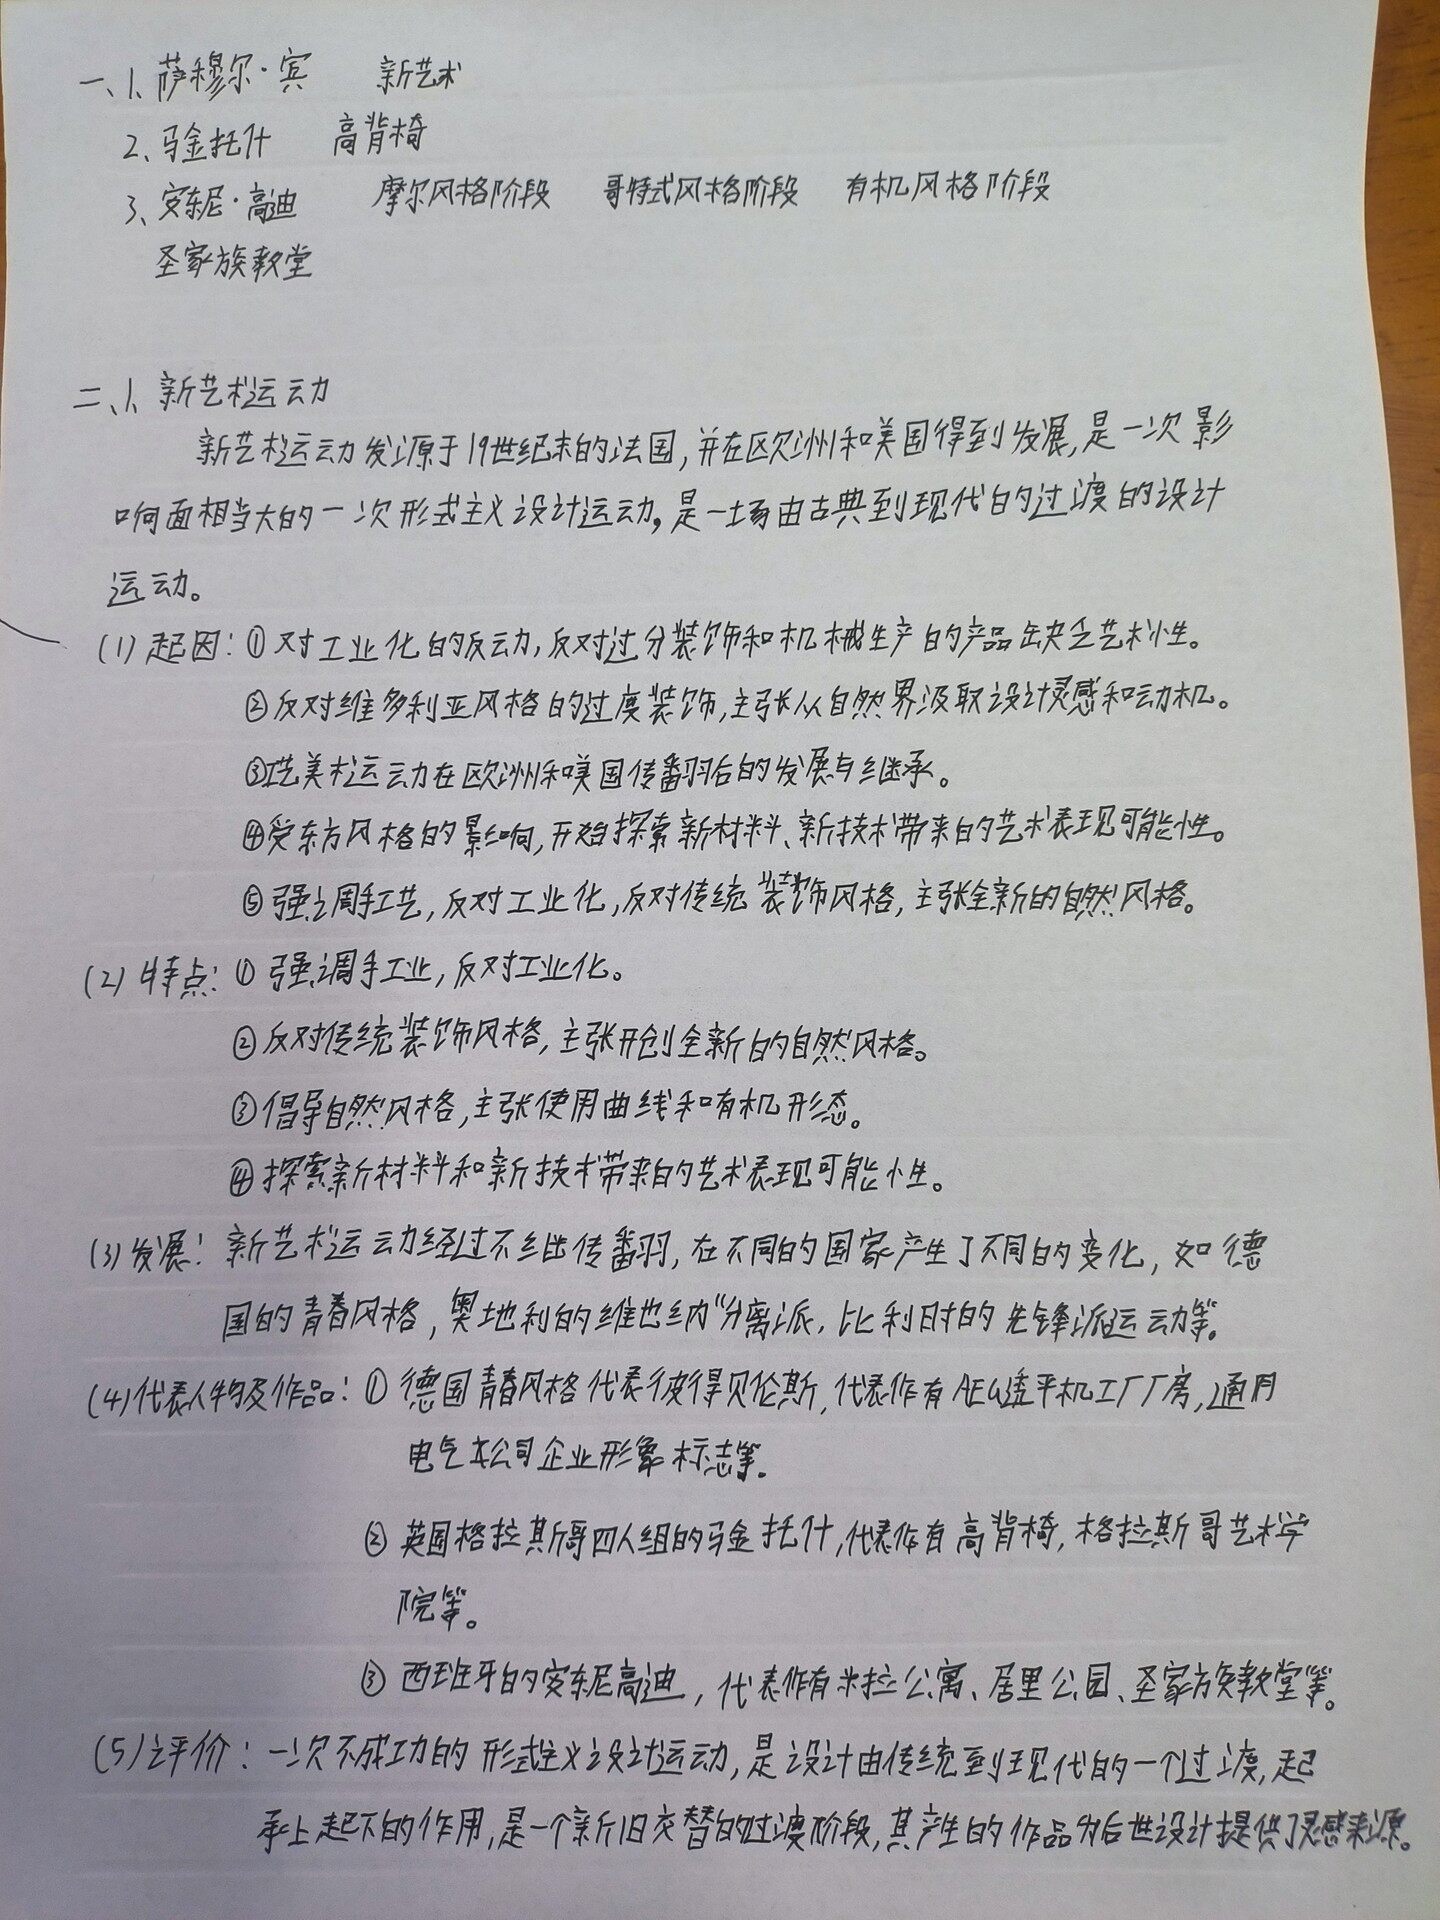 一、1、萨穆尔·宾 新艺术
2、马金托什 高背椅
3、安东尼·高迪 摩尔风格阶段 哥特式风格阶段 有机风格阶段
圣家族教堂
二、1、新艺术运动
新艺术运动发源于19世纪末的法国,并在欧洲和美国得到发展,是一次影
响面相当大的一次形式主义设计运动,是一场由古典到现代的过渡的设计
运动。
(1)起因:①对工业化的反动,反对过分装饰和机械生产的产品缺乏艺术性。
②反对维多利亚风格的过度装饰,主张从自然界汲取设计灵感和动机。
③工艺美术运动在欧洲和美国传播后的发展与继承。
④受东方风格的影响,开始探索新材料、新技术带来的艺术表现可能性。
⑤强调手工艺,反对工业化,反对传统装饰风格,主张全新的自然风格。
(2)特点:①强调手工业,反对工业化。
②反对传统装饰风格,主张开创全新的自然风格。
③倡导自然风格,主张使用曲线和有机形态。
④探索新材料和新技术带来的艺术表现可能性。
(3)发展:新艺术运动经过不断传播,在不同的国家产生了不同的变化,如德
国的青春风格,奥地利的维也纳“分离派,比利时的先锋派运动等。
(4)代表人物及作品:①德国青春风格代表彼得贝伦斯,代表作有AEG透平机工厂厂房,通用
电气公司企业形象标志等。
②英国格拉斯哥四人组的马金托什,代表作有高背椅,格拉斯哥艺术学
院等。
③西班牙的安东尼高迪,代表作有米拉公寓、居里公园、圣家族教堂等。
(5)评价:一次不成功的形式主义设计运动,是设计由传统到现代的一个过渡,起
承上起下的作用,是一个新旧交替的过渡阶段,其产生的作品为后世设计提供了灵感来源。